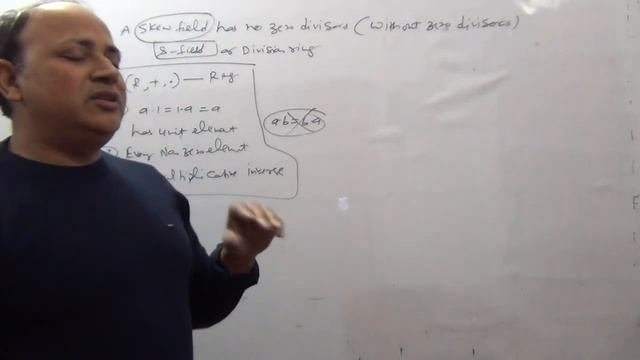 A Skew field has no zero divisors (without zero divisors)
S-field or Division ring
(R, +, ·) — Ring
a·1 = 1·a = a
has unit element
Every Non zero element
multiplicative inverse
a·b = b·a